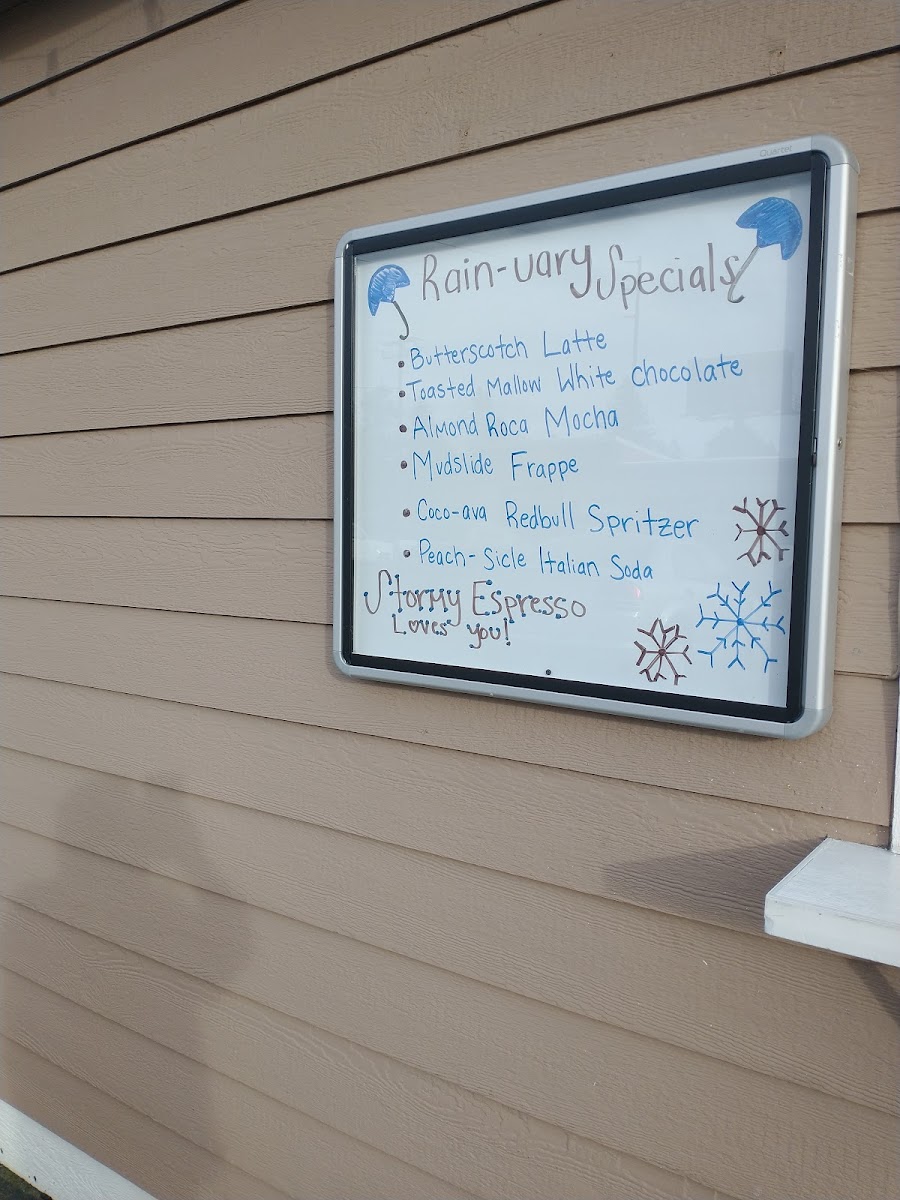 Quartet
Rain-uary Specials
• Butterscotch Latte
• Toasted Mallow White Chocolate
• Almond Roca Mocha
• Mudslide Frappe
• Coco-ava Redbull Spritzer
• Peach-sicle Italian Soda
Stormy Espresso
Loves you!